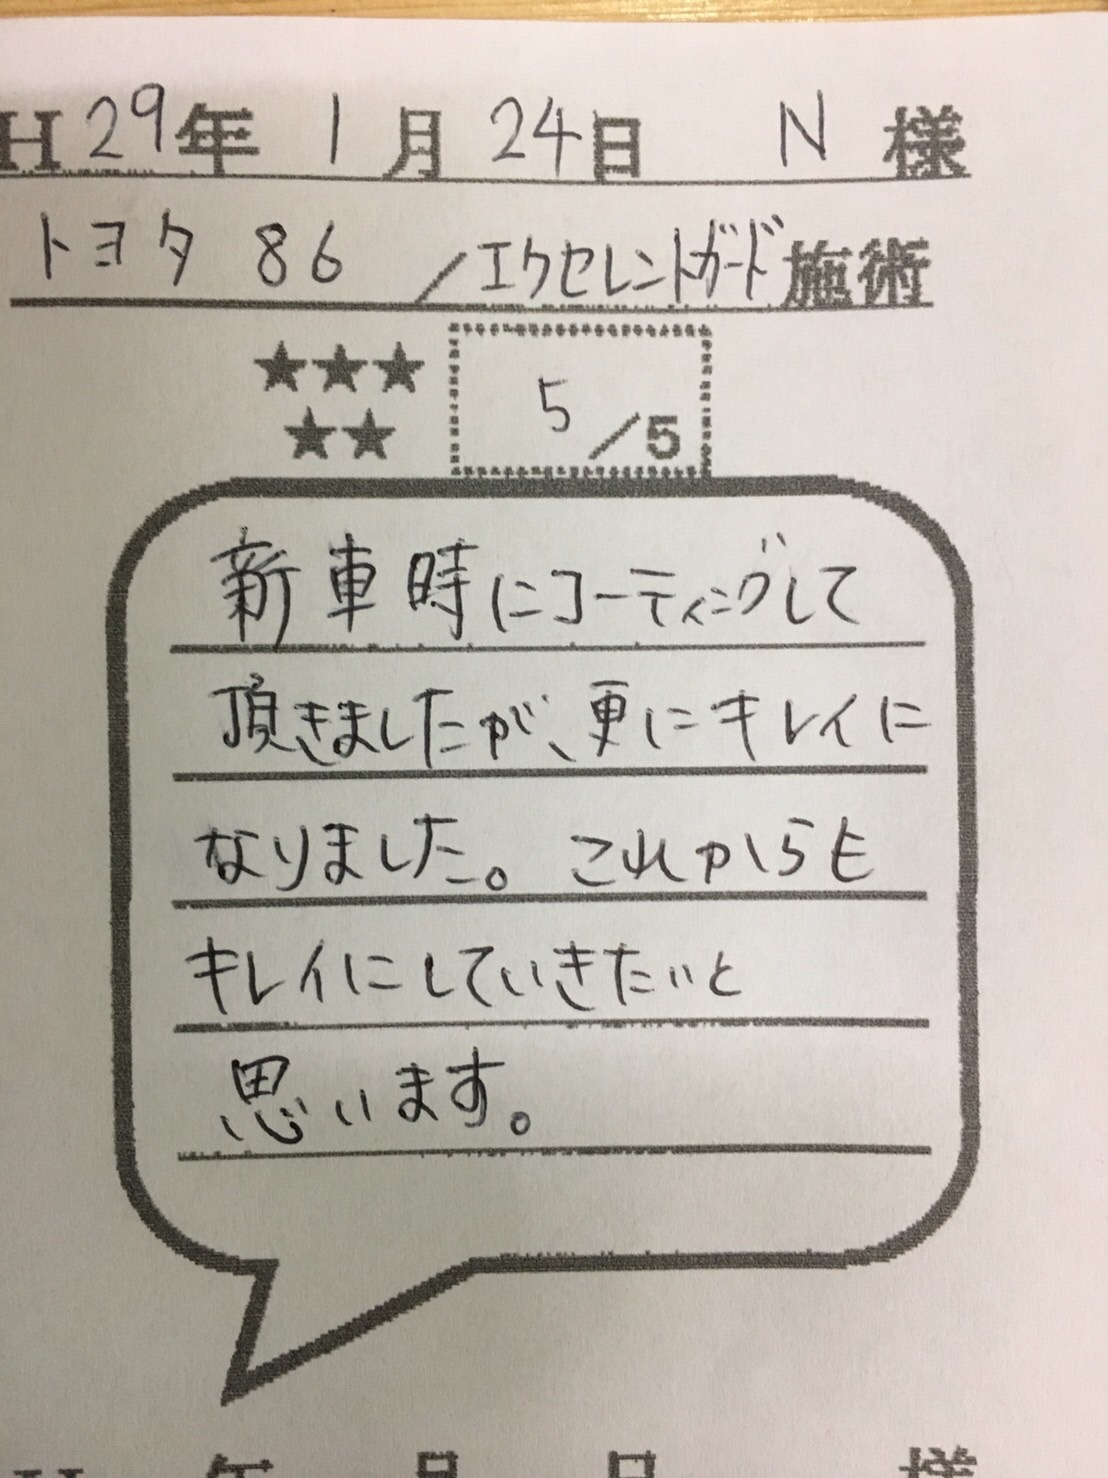 H29年 1月 24日 N 様
トヨタ 86 /エクセレントガード施術
★★★
★★
5/5
新車時にコーティングして
頂きましたが、更にキレイに
なりました。これからも
キレイにしていきたいと
思います。
H 年 月 日 様